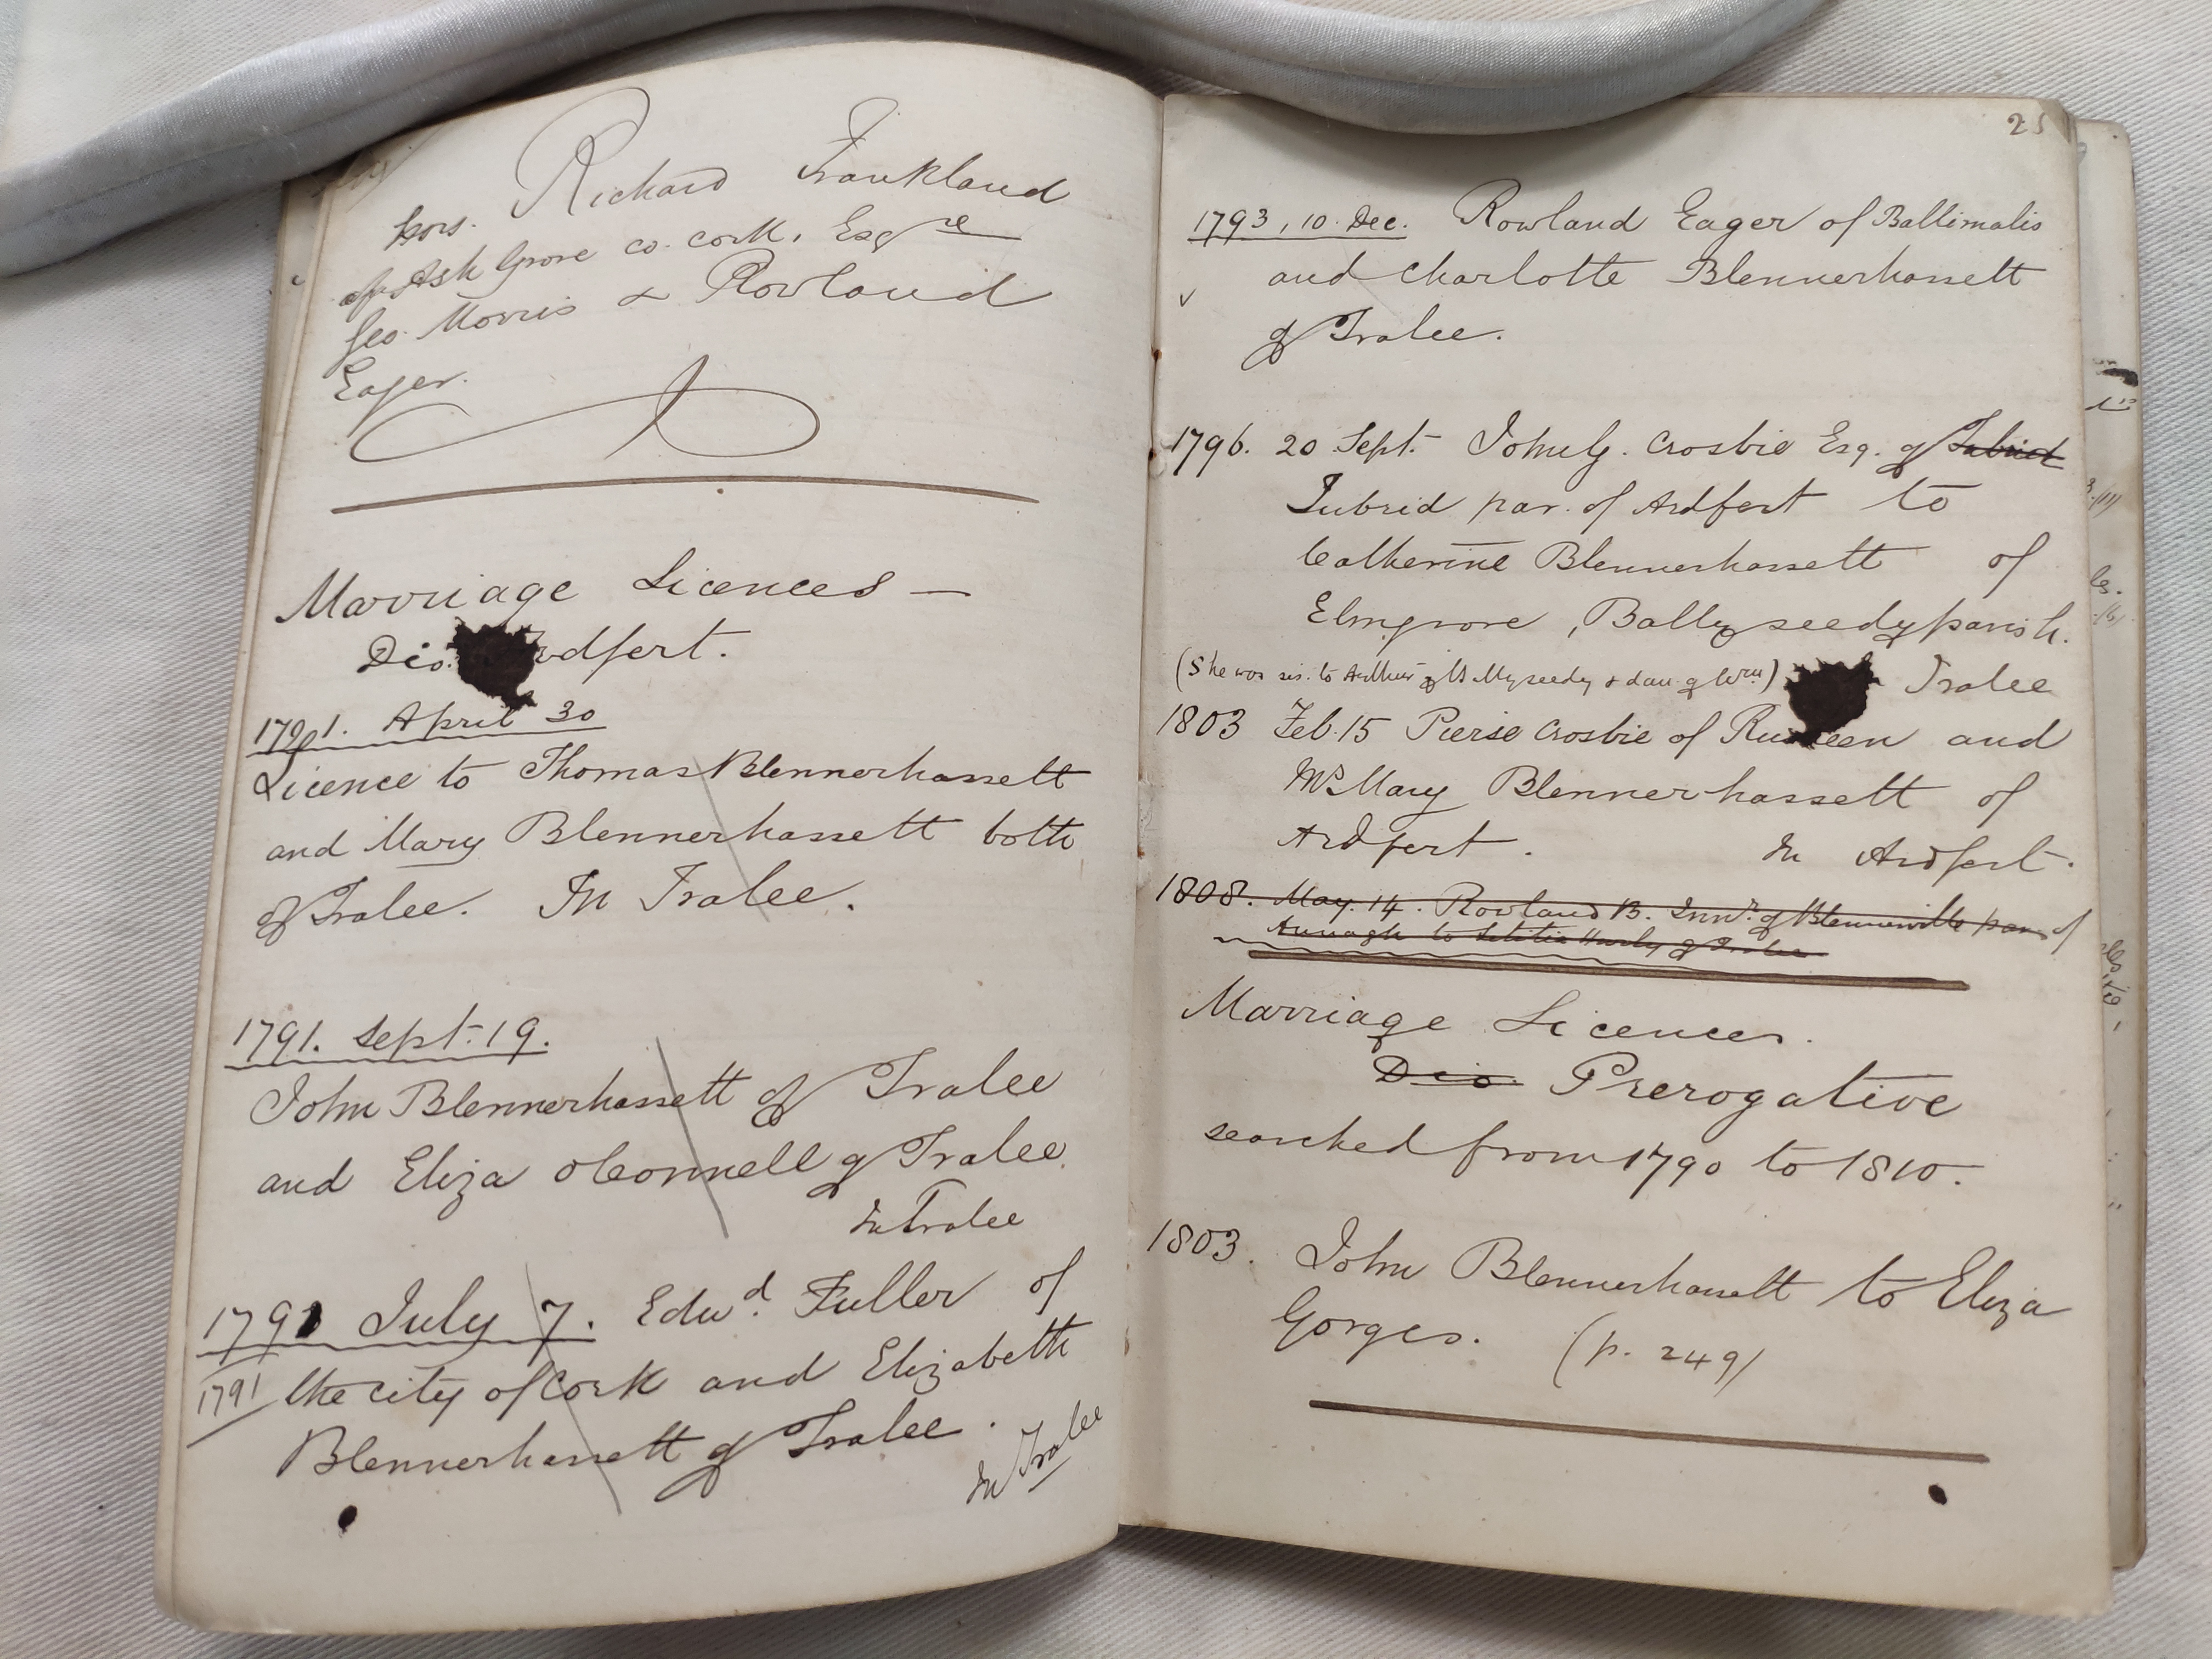 Exors. Richard Frankland
of Ash Grove co. Cork, Esqre
Geo. Morris & Rowland
Eager.
Marriage Licences —
Dio. Ardfert.
1791. April 30
Licence to Thomas Blennerhassett
and Mary Blennerhassett both
of Tralee. In Tralee.
1791. Sept. 19.
John Blennerhassett of Tralee
and Eliza OConnell of Tralee.
In Tralee
1791 July 7. Edwd. Fuller of
1791 the city of Cork and Elizabeth
Blennerhassett of Tralee.
In Tralee
25
1793, 10 Dec. Rowland Eager of Ballimalis
and Charlotte Blennerhassett
of Tralee.
1796. 20 Sept. John G. Crosbie Esq. of Tubrid
Tubrid par. of Ardfert to
Catherine Blennerhassett of
Elmgrove, Ballyseedy parish.
(She was sis. to Arthur of Ballyseedy & dau. of Wm) Tralee
1803 Feb. 15 Pierse Crosbie of and
Mrs Mary Blennerhassett of
Ardfert. In Ardfert.
1808. May. 14. Rowland B. Junr. of Blennerville par of
Annagh to Letitia Hurly of Tralee
Marriage Licences.
Dio. Prerogative
searched from 1790 to 1810.
1803. John Blennerhassett to Eliza
Gorges. (p. 249)